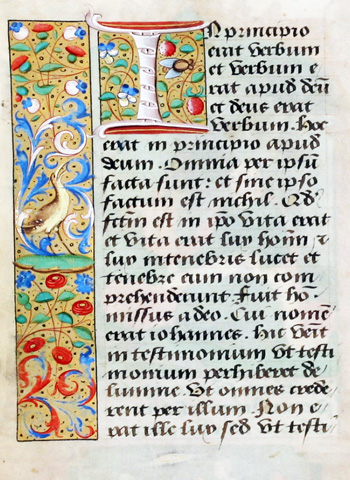 IN principio
erat verbum
et verbum e
rat apud deū
et deus erat
verbum. Hoc
erat in principio apud
deum. Omnia per ipsū
facta sunt: et sine ipso
factum est nichil. Qd
fctm est in ipo vita erat
et vita erat lux hoīm ⁊
lux in tenebris lucet et
tenebre eum non com
prehenderunt. Fuit hō
missus a deo. Cui nomē
erat iohannes. hic venīt
in testimonium vt testi
monium perhiberet de
lumine. Vt omnes crede
rent per illum. Non e
rat ille lux sed vt testi